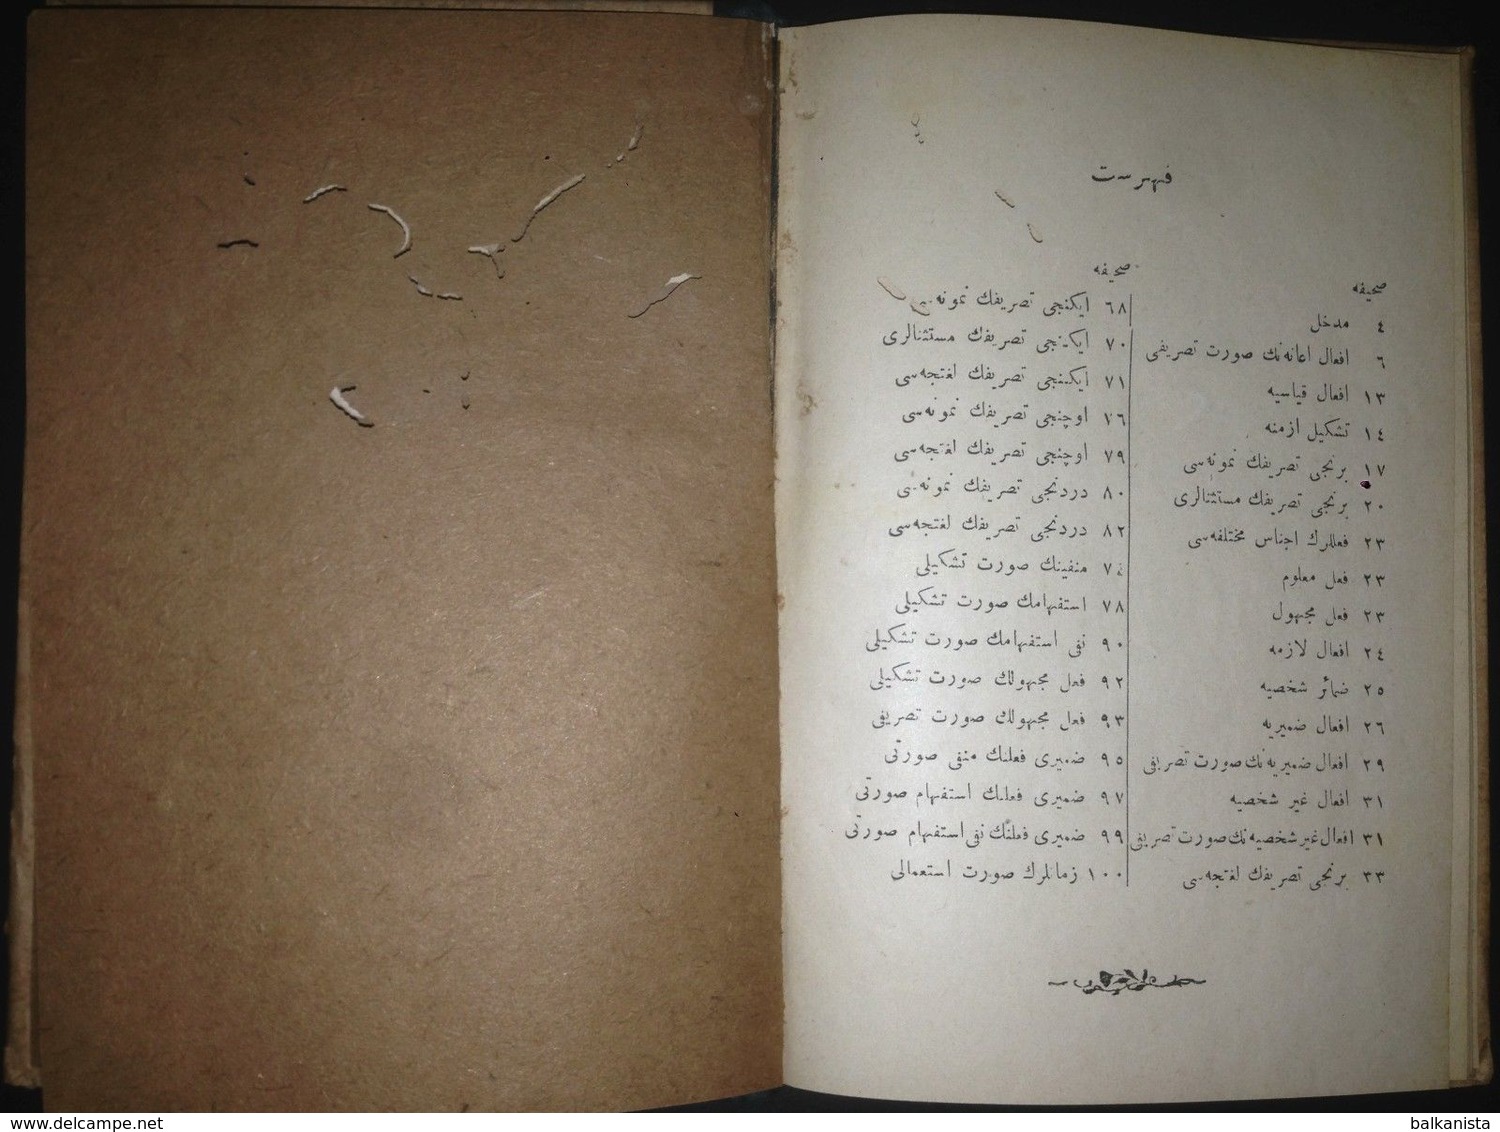 فهرست
صحیفه
٤ مدخل
٦ افعال اعانه‌نك صورت تصریفی
١٣ افعال قیاسیه
١٤ تشکیل ازمنه
١٧ برنجی تصریفك نمونه‌سی
٢٠ برنجی تصریفك مستثنالری
٢٣ فعللرك اجناس مختلفه‌سی
٢٣ فعل معلوم
٢٣ فعل مجهول
٢٤ افعال لازمه
٢٥ ضمائر شخصیه
٢٦ افعال ضمیریه
٢٩ افعال ضمیریه‌نك صورت تصریفی
٣١ افعال غیر شخصیه
٣١ افعال غیر شخصیه‌نك صورت تصریفی
٣٣ برنجی تصریفك لغتجه‌سی
صحیفه
٦٨ ایکنجی تصریفك نمونه‌سی
٧٠ ایکنجی تصریفك مستثنالری
٧١ ایکنجی تصریفك لغتجه‌سی
٧٦ اوچنجی تصریفك نمونه‌سی
٧٩ اوچنجی تصریفك لغتجه‌سی
٨٠ دردنجی تصریفك نمونه‌سی
٨٢ دردنجی تصریفك لغتجه‌سی
٧٤ منفینك صورت تشکیلی
٧٨ استفهامك صورت تشکیلی
٩٠ نفی استفهامك صورت تشکیلی
٩٢ فعل مجهولك صورت تشکیلی
٩٣ فعل مجهولك صورت تصریفی
٩٥ ضمیری فعلنك منفی صورتی
٩٧ ضمیری فعلنك استفهام صورتی
٩٩ ضمیری فعلنك نفی استفهام صورتی
١٠٠ زمانلرك صورت استعمالی
www.delcampe.net
balkanista